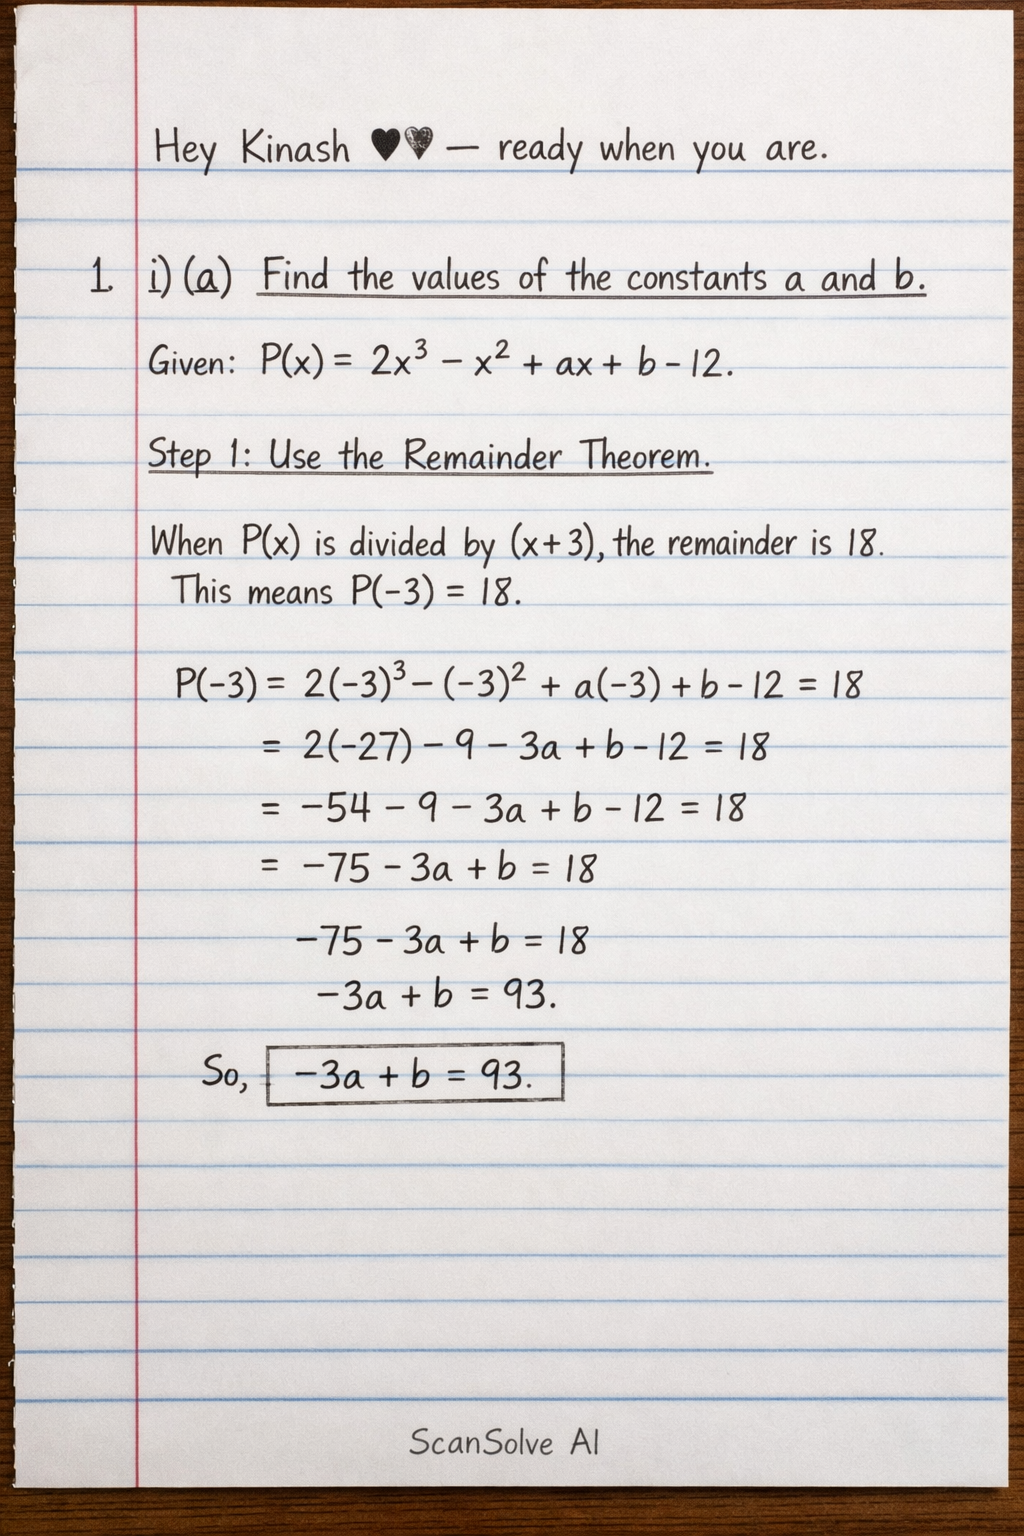 Hey Kinash 🖤🖤 — ready when you are.
1. i) (a) Find the values of the constants a and b.
Given: P(x) = 2x³ − x² + ax + b − 12.
Step 1: Use the Remainder Theorem.
When P(x) is divided by (x+3), the remainder is 18.
This means P(−3) = 18.
P(−3) = 2(−3)³ − (−3)² + a(−3) + b − 12 = 18
= 2(−27) − 9 − 3a + b − 12 = 18
= −54 − 9 − 3a + b − 12 = 18
= −75 − 3a + b = 18
−75 − 3a + b = 18
−3a + b = 93.
So, −3a + b = 93.
ScanSolve AI